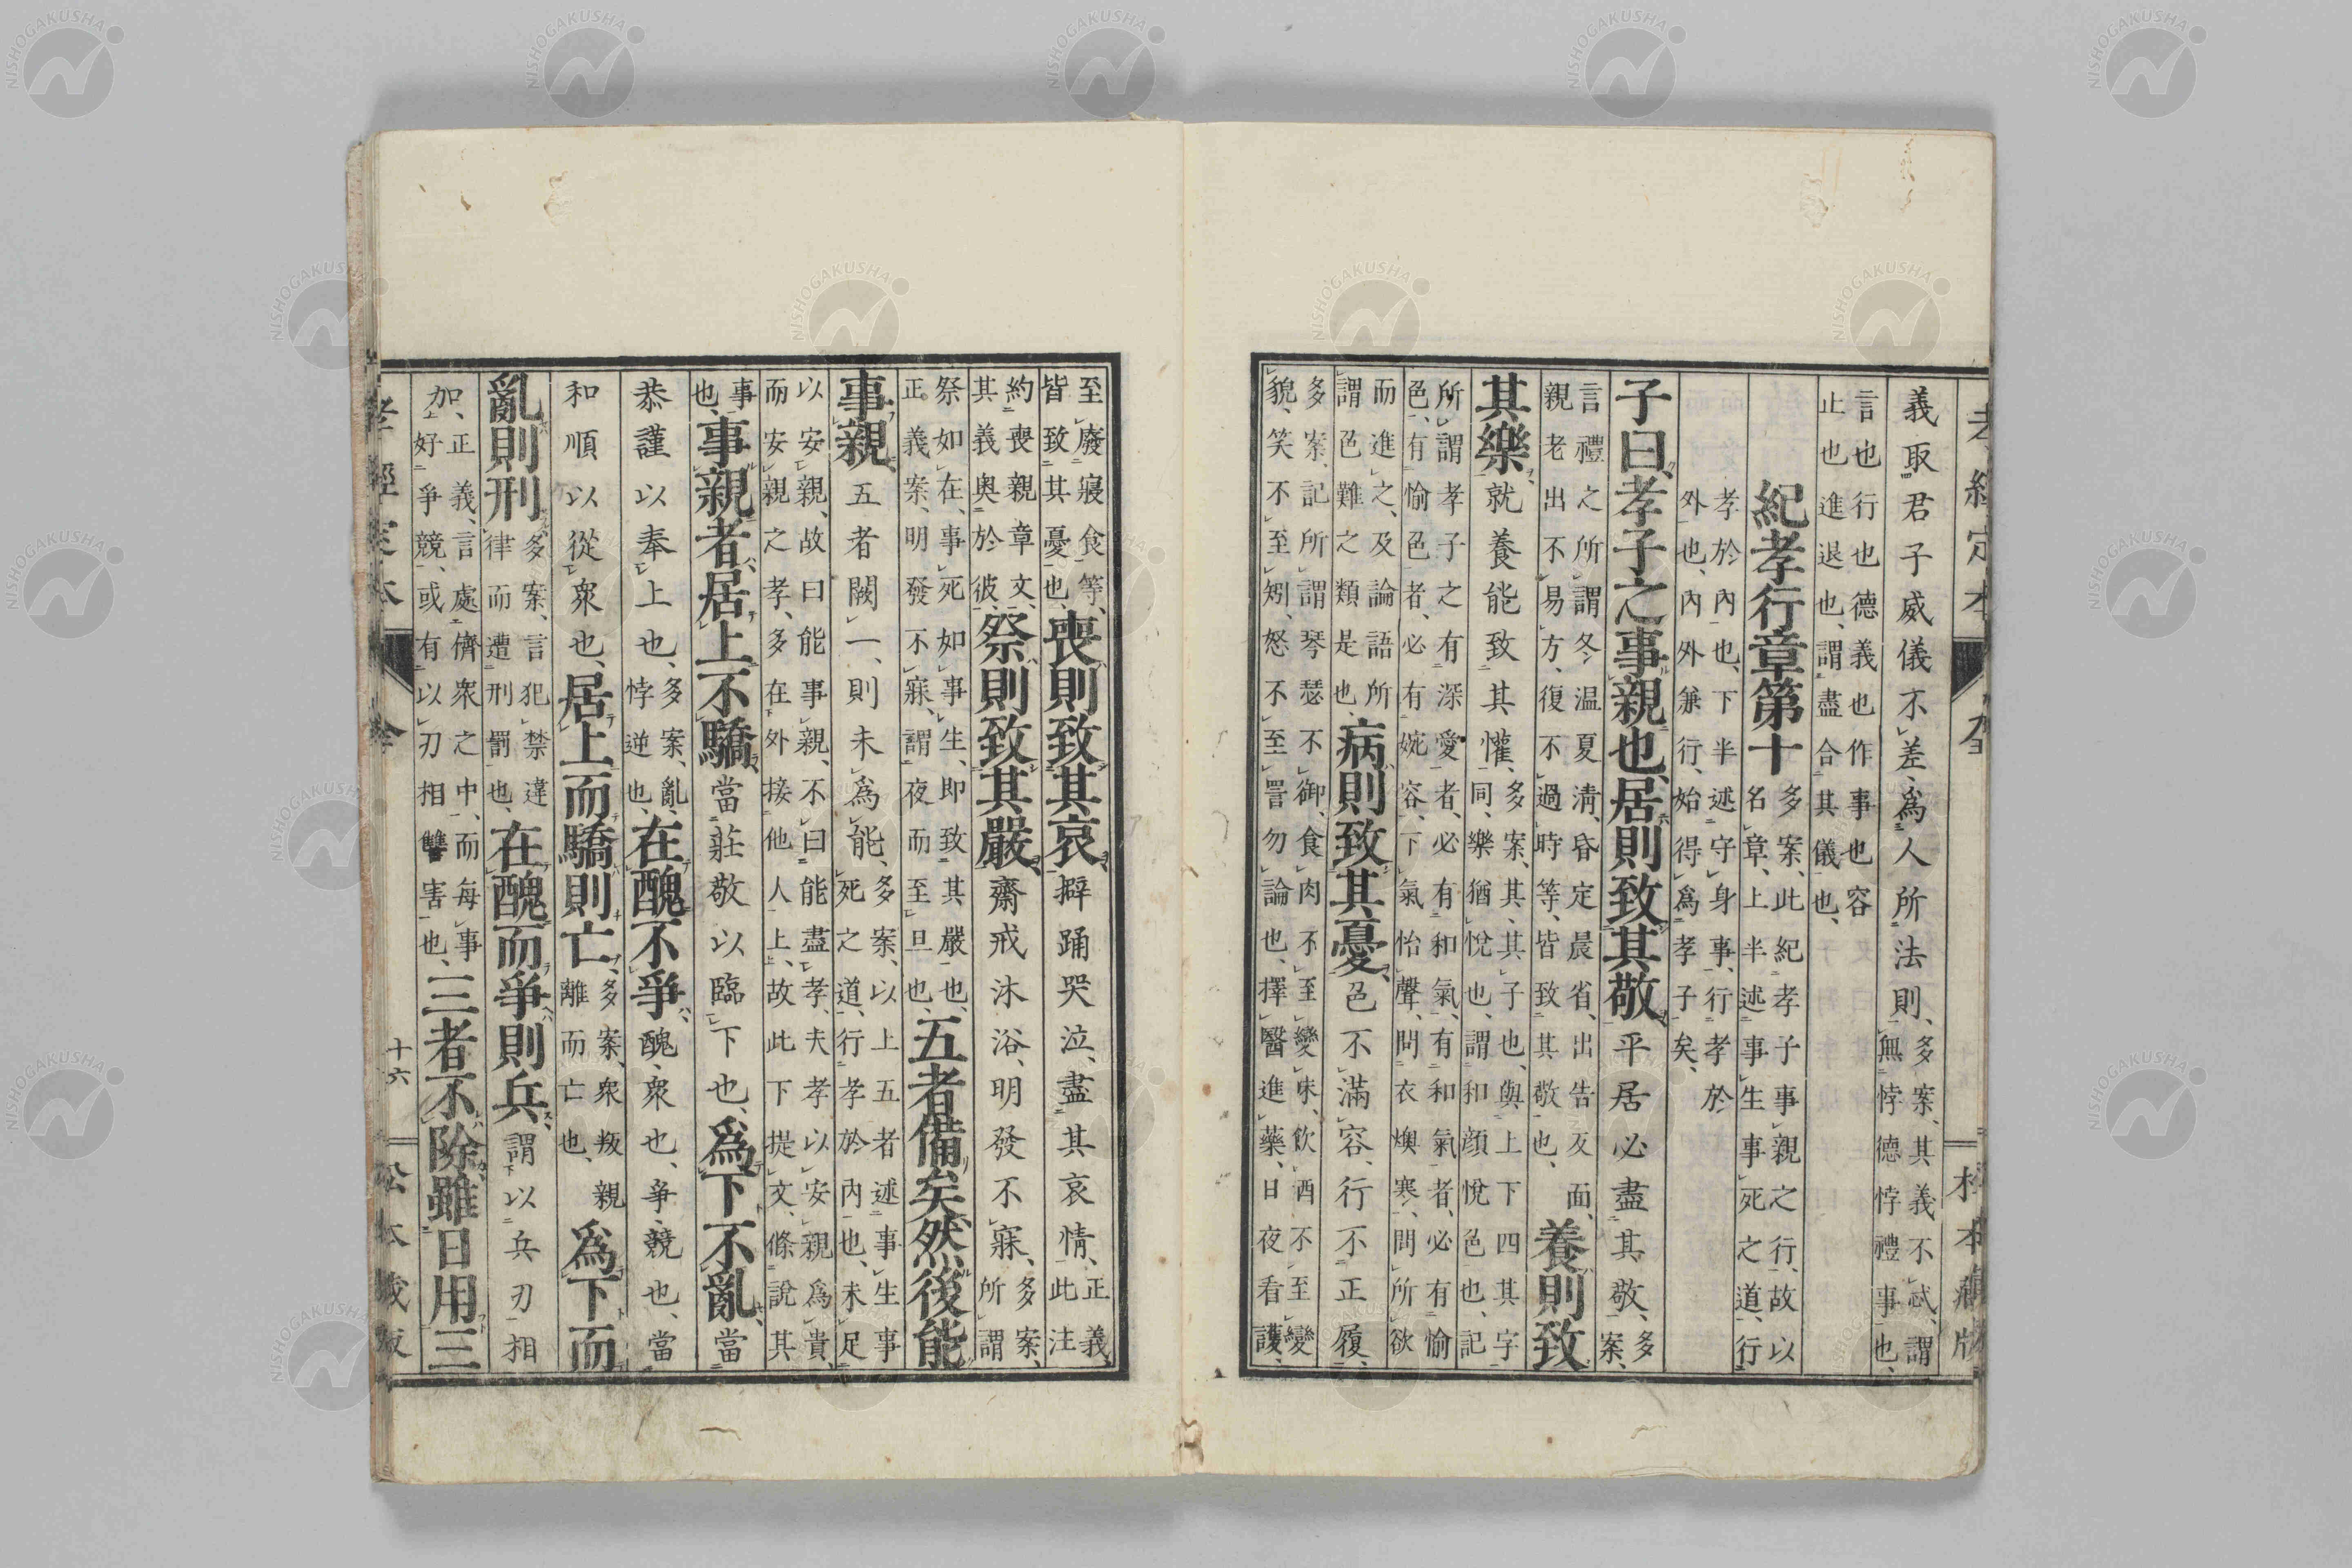 義取君子威儀不差、爲人所法則、
多案、其義不忒、謂
無悖德悖禮事也、
言也行也德義也作事也容
止也進退也、謂盡合其儀也、
紀孝行章第十
多案、此紀孝子事親之行、故以
名章、上半述事生事死之道、行
孝於內也、下半述守身事、行孝於
外也、內外兼行、始得爲孝子矣、
子曰、孝子之事親也、居則致其敬、平居必盡其敬、
多
案、
言禮之所謂冬溫夏凊昏定晨省、出告反面、
親老出不易方、復不過時等、皆致其敬也、
養則致
其樂、就養能致其懽、
多案、其、其子也、與上下四其字
同、樂猶悅也、謂和顏悅色也、記
所謂孝子之有深愛者、必有和氣、有和氣者、必有愉
色、有愉色者、必有婉容、下氣怡聲、問衣燠寒、問所欲
而進之、及論語所
謂色難之類是也、
病則致其憂、色不滿容、行不正履、
多案、記所謂琴瑟不御、食肉不至變味、飲酒不至變
貌、笑不至矧、怒不至詈、勿論也、擇醫進藥、日夜看護、
至廢寢食等、
皆致其憂也、
喪則致其哀、擗踊哭泣、盡其哀情、
正義、
此注
約喪親章文、
其義奧於彼、
祭則致其嚴、齋戒沐浴、明發不寐、
多案、
所謂
祭如在、事死如事生、即致其嚴也、
正義案、明發不寐、謂夜而至旦也、
五者備矣、然後能
事親、五者闕一、則未爲能、
多案、以上五者述事生事
死之道、行孝於內也、未足
以安親、故曰能事親、不曰能盡孝、夫孝以安親爲貴、
而安親之孝、多在外接他人上、故此下提文、條說其
事
也、
事親者、居上不驕、當莊敬以臨下也、爲下不亂、當
恭謹以奉上也、
多案、亂、
悖逆也、
在醜不爭、醜、衆也、爭、競也、當
和順以從衆也、居上而驕則亡、
多案、衆叛親
離而亡也、
爲下而
亂則刑、
多案、言犯禁違
律而遭刑罰也、
在醜而爭則兵、謂以兵刃相
加、
正義、言處儕衆之中、而每事
好爭競、或有以刃相讐害也、
三者不除、雖日用三
孝經定本
十六
松本藏版